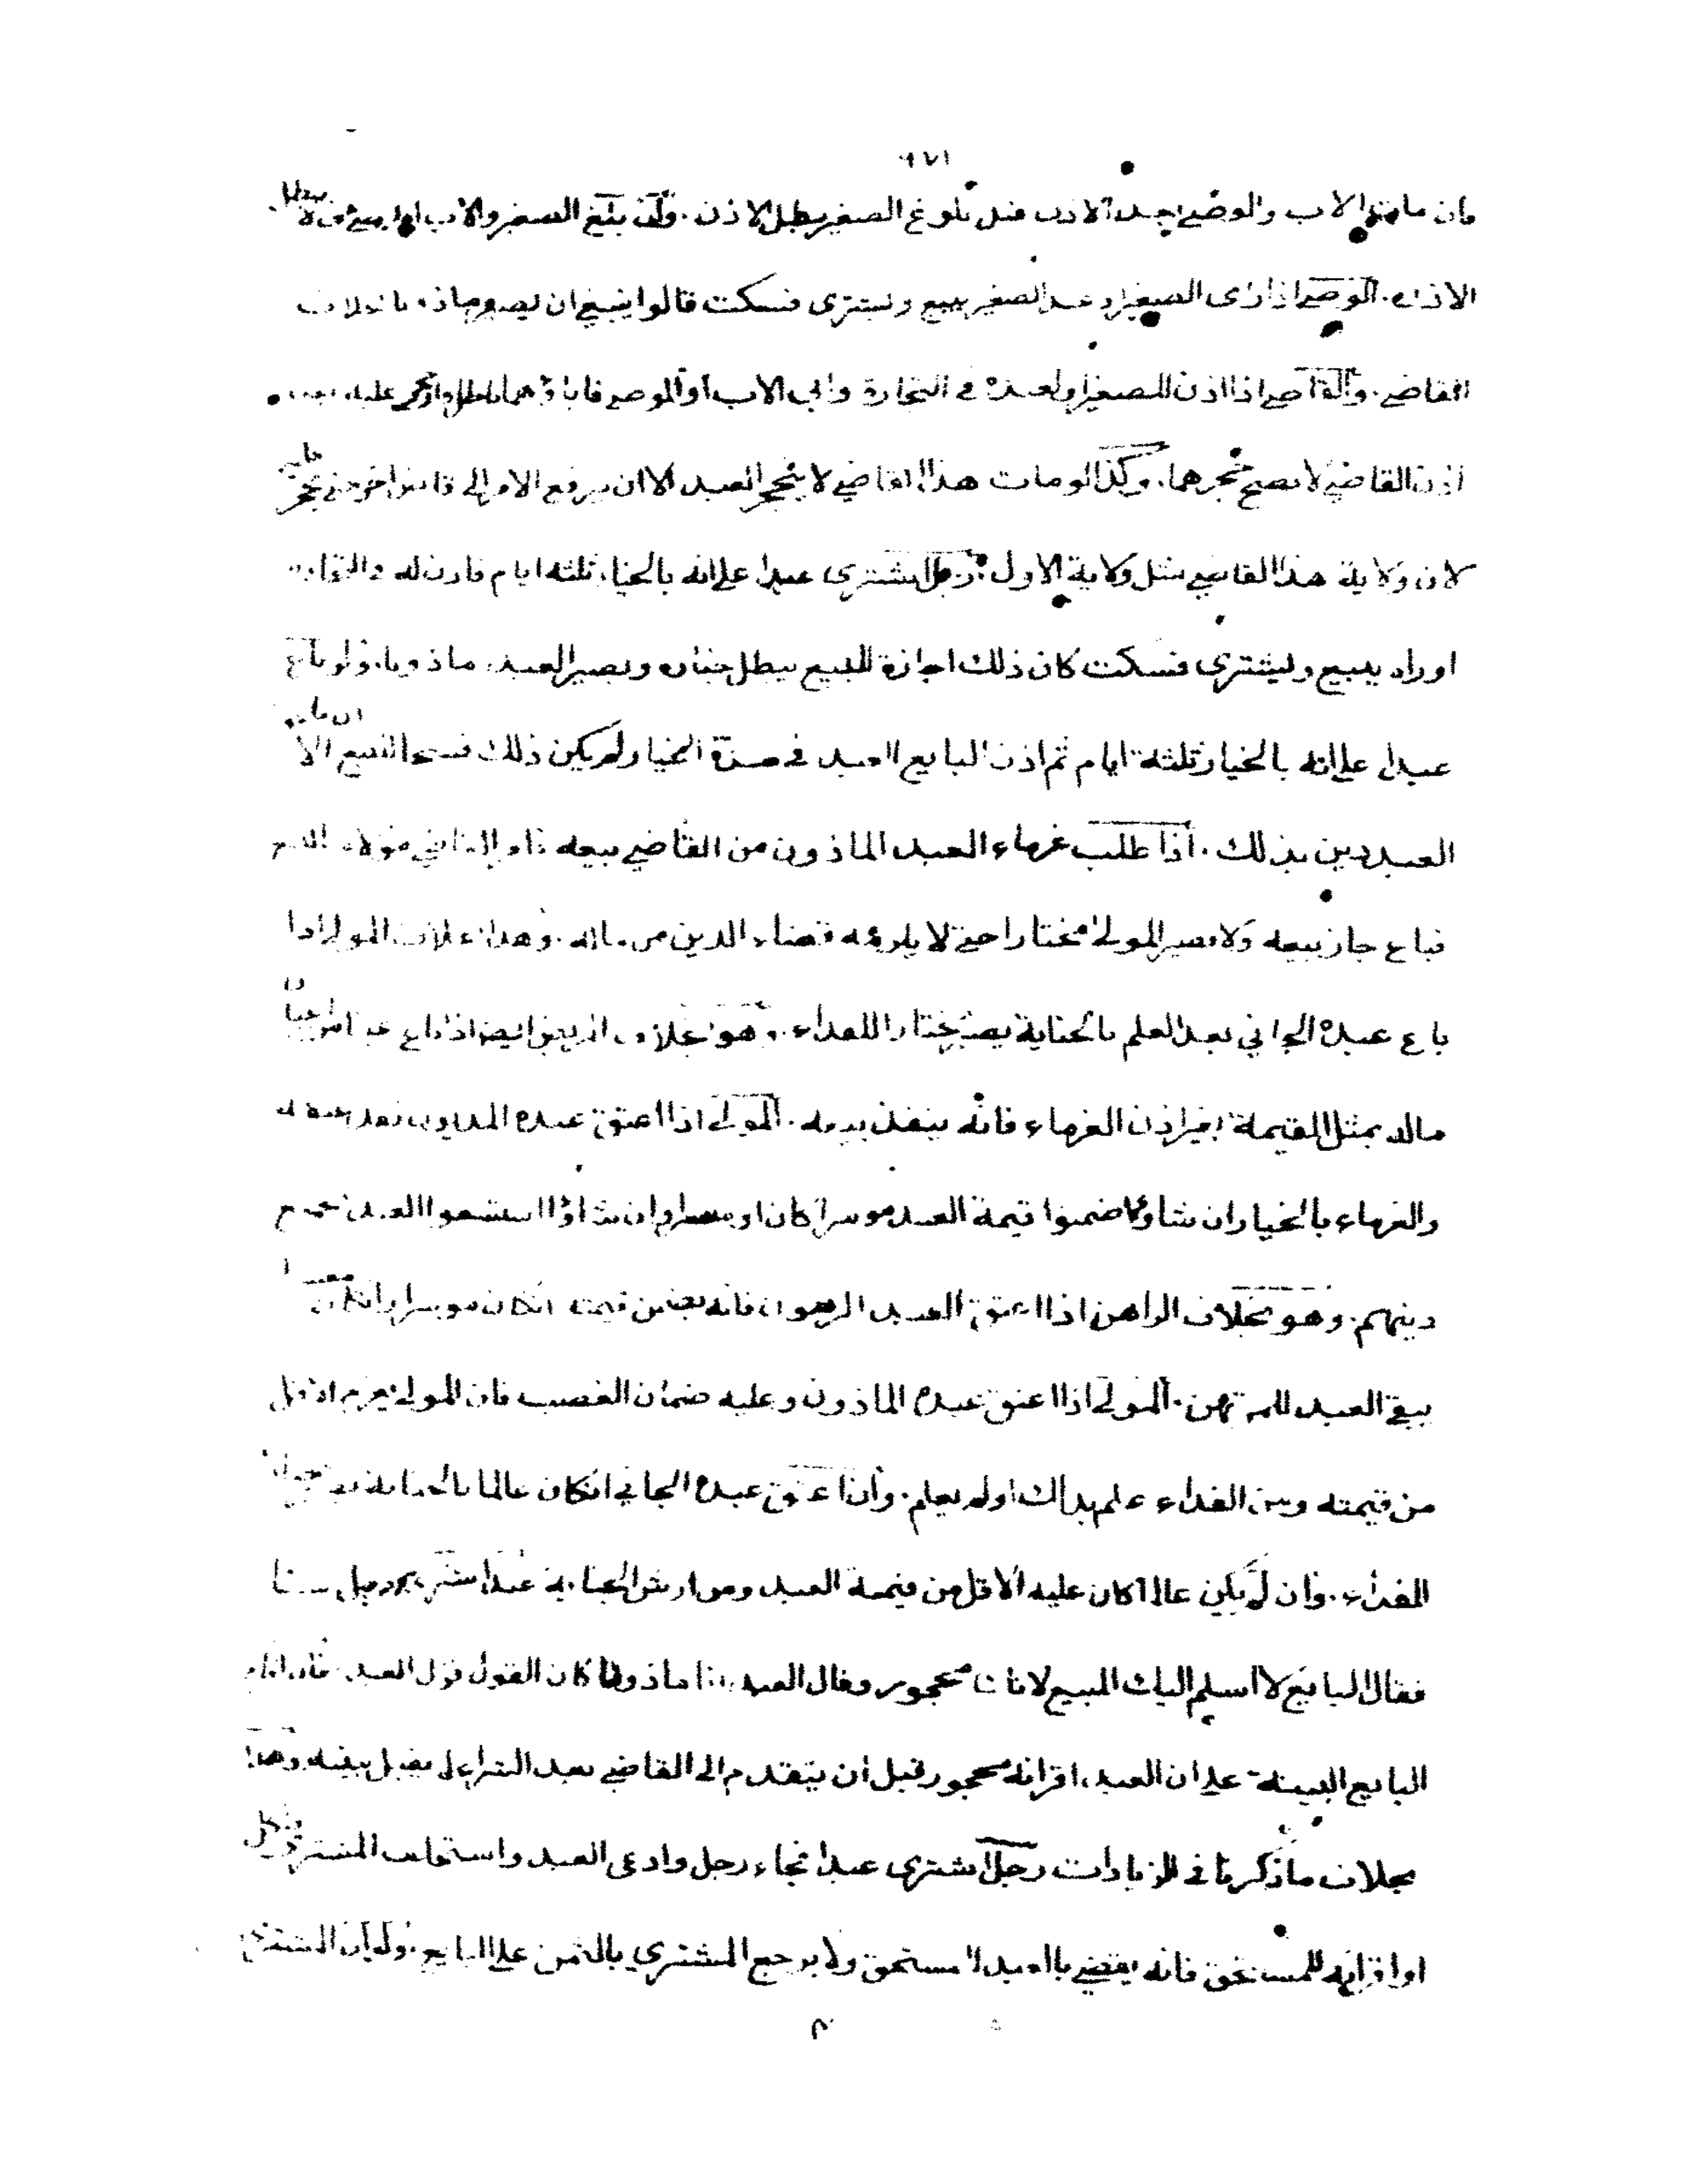 فان مات الاب والوصي بعد الاذن قبل بلوغ الصغير بطل الاذن. وان بلغ الصغير والاب او الوصي حي لا يبطل
الاذن. الوصي اذا رأى الصغير او عبد الصغير يبيع ويشترى فسكت قالوا ينبغي ان يصير ماذونا بخلاف
القاضي. والقاضي اذا اذن للصغير او لعبده في التجارة وابى الاب او الوصي فاباؤهما باطل وان حجر عليه بعد
اذن القاضي لا يصح حجرهما. وكذا لو مات هذا القاضي لا ينحجر العبد الا ان يرفع الامر الى قاض اخر حتى يحجر عليه
لان ولاية هذا القاضي مثل ولاية الاول. رجل اشترى عبدا على انه بالخيار ثلثة ايام فاذن له في التجارة
او راه يبيع ويشترى فسكت كان ذلك اجازة للبيع يبطل خياره ويصير العبد ماذونا. ولو باع
عبدا على انه بالخيار ثلثة ايام ثم اذن البايع العبد في مدة الخيار لم يكن ذلك فسخا للبيع الا ان يلحق
العبد دين بذلك. اذا طلب غرماء العبد الماذون من القاضي بيعه فامر القاضي مولاه بالبيع
فباع جاز بيعه ولا يصير المولى مختارا حتى لا يلزمه قضاء الدين من ماله. وهذا بخلاف المولى اذا
باع عبده الجاني بعد العلم بالجناية يصير مختارا للفداء. وهو بخلاف المريض ايضا اذا باع عينا من اعيان
ماله بمثل القيمة بغير اذن الغرماء فانه ينفذ بيعه. المولى اذا اعتق عبده المديون نفذ عتقه
والغرماء بالخيار ان شاوا ضمنوا قيمة العبد موسرا كان او معسرا وان شاؤا استسعوا العبد بجميع
دينهم. وهو بخلاف الراهن اذا اعتق العبد المرهون فانه يضمن قيمته ان كان موسرا وان كان معسرا
يبقى العبد للمرتهن. المولى اذا اعتق عبده الماذون وعليه ضمان الغصب فان المولى يغرم الاقل
من قيمته ومن الفداء علم بذلك او لم يعلم. واذا اعتق عبده الجاني ان كان عالما بالجناية يصير مختارا
الفداء. وان لم يكن عالما كان عليه الاقل من قيمة العبد ومن ارش الجناية عبد اشترى من رجل شيئا
فقال البايع لا اسلم اليك المبيع لانك محجور وقال العبد انا ماذون كان القول قول العبد فان اقام
البايع البينة على ان العبد اقر انه محجور قبل ان يتقدم الى القاضي بعد الشراء لم يقبل بينته وهذا
بخلاف ما ذكرنا في الزيادات رجل اشترى عبدا فجاء رجل وادعى العبد واستحلف المشترى فنكل
او اقر انه للمستحق فانه يقضي بالعبد المستحق ولا يرجع المشتري بالثمن على البايع. ولو ان المشتري